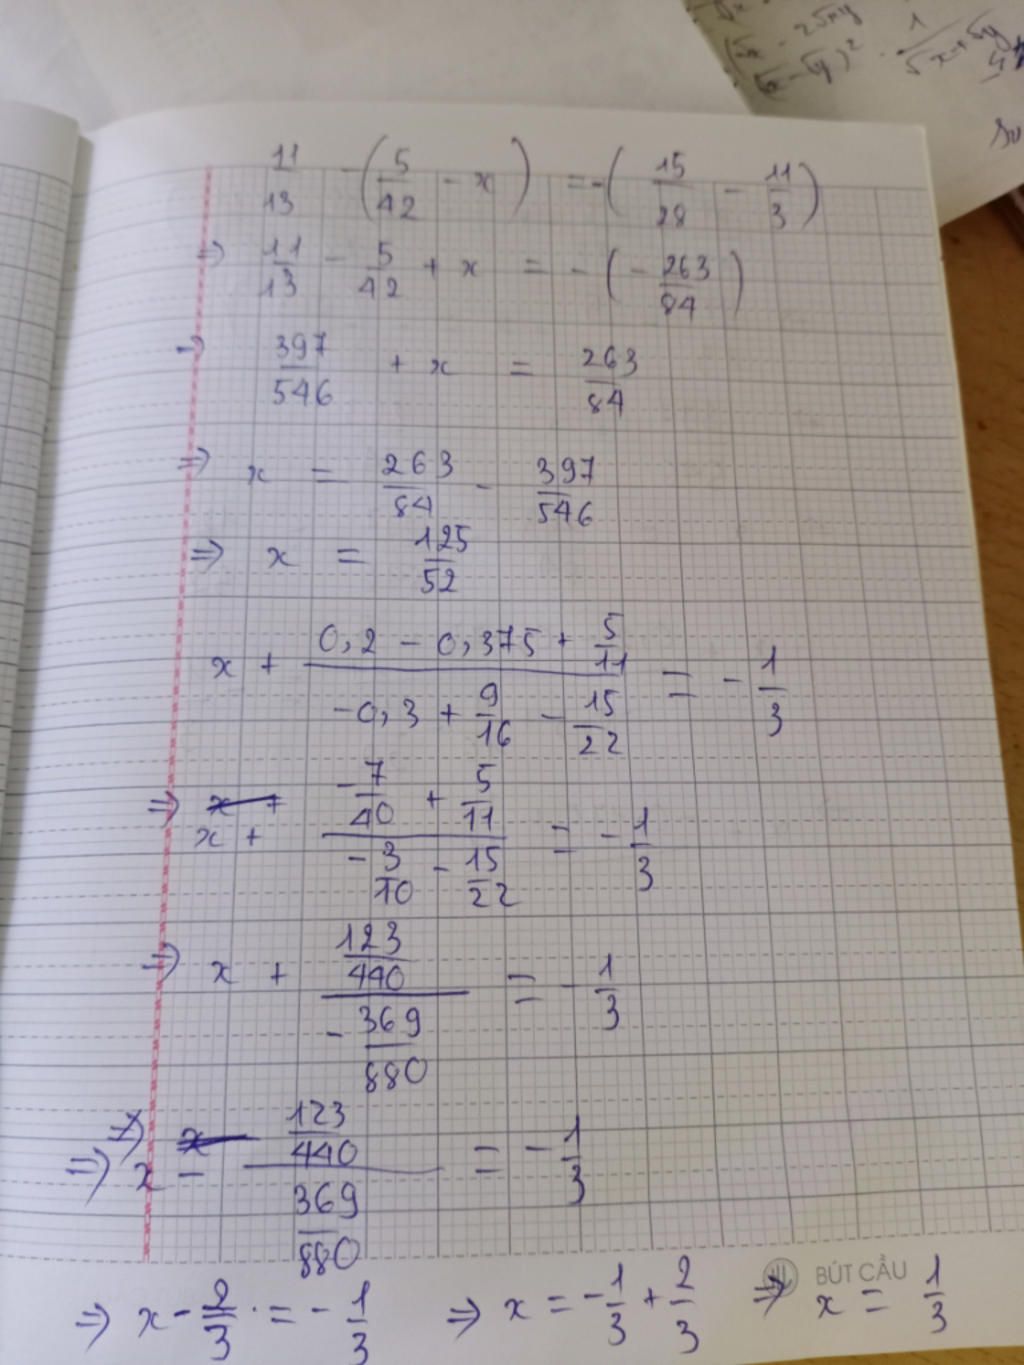 11/13 - (5/42 - x) = -(15/28 - 11/3)
=> 11/13 - 5/42 + x = -(-263/84)
=> 397/546 + x = 263/84
=> x = 263/84 - 397/546
=> x = 125/52
x + (0,2 - 0,375 + 5/11)/(-0,3 + 9/16 - 15/22) = -1/3
=> x + (-7/40 + 5/11)/(-3/10 - 15/22) = -1/3
=> x + (123/440)/(-369/880) = -1/3
=> x - (123/440)/(369/880) = -1/3
BÚT CẦU
=> x - 2/3 . = -1/3 => x = -1/3 + 2/3 => x = 1/3